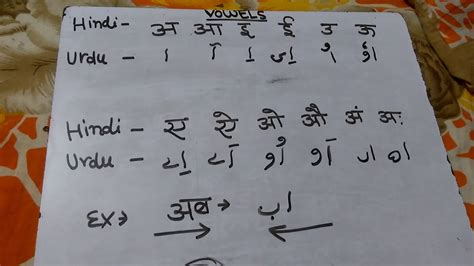 VOWELS
Hindi - अ आ इ ई उ ऊ
Urdu - ا آ اِ اِی اُ اُو
Hindi - ए ऐ ओ औ अं अः
Urdu - اے اَے او اَو اں اہ
Ex→ अब → اب